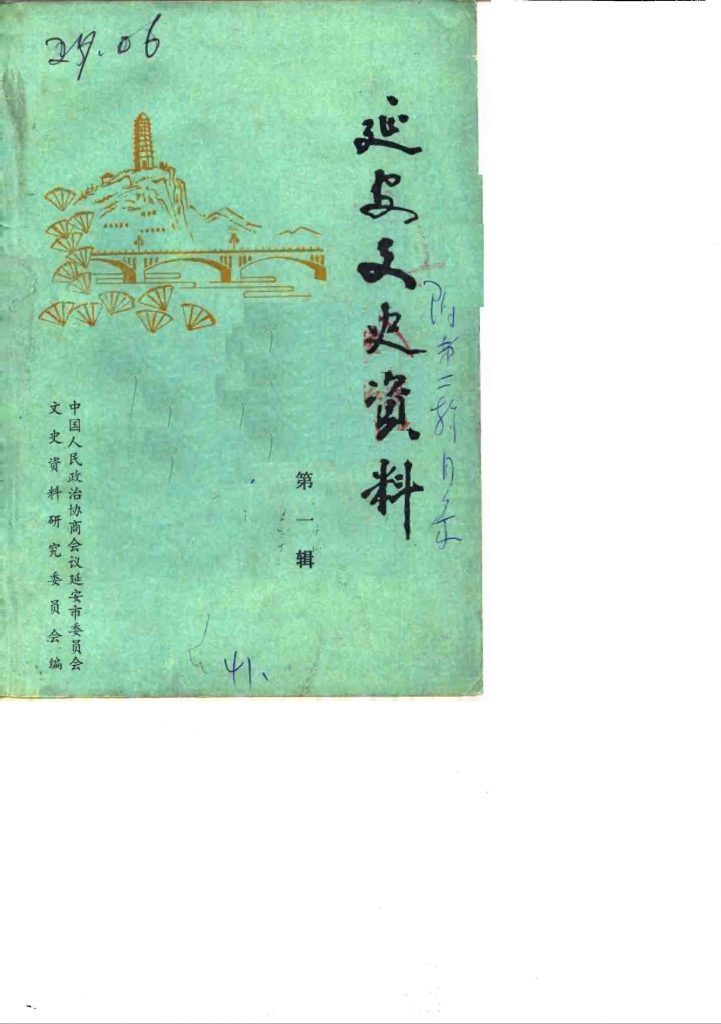 27.06
延安文史資料
附第二辑目录
第一辑
中国人民政治协商会议延安市委员会
文史资料研究委员会编
41.